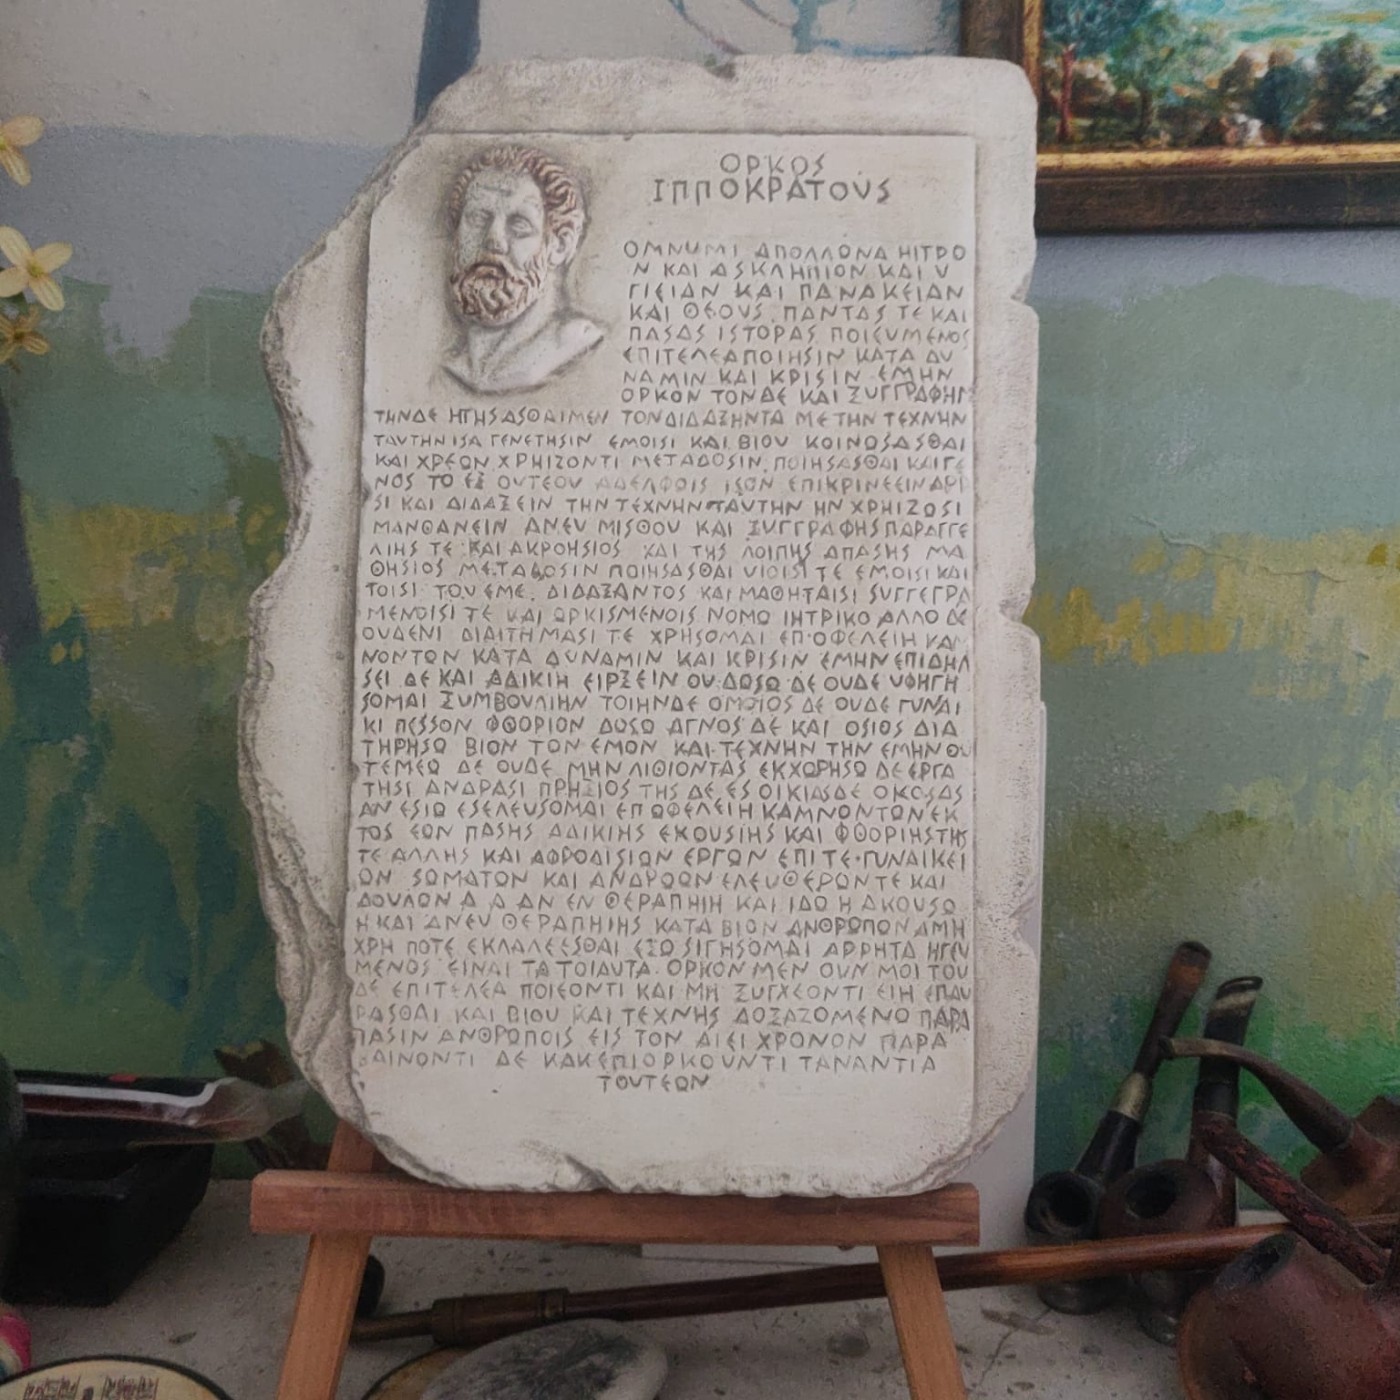 ΟΡΚΟΣ
ΙΠΠΟΚΡΑΤΟΥΣ
ΟΜΝΥΜΙ ΑΠΟΛΛΩΝΑ ΗΙΤΡΟ
Ν ΚΑΙ ΑΣΚΛΗΠΙΟΝ ΚΑΙ Υ
ΓΙΕΙΑΝ ΚΑΙ ΠΑΝΑΚΕΙΑΝ
ΚΑΙ ΘΕΟΥΣ ΠΑΝΤΑΣ ΤΕ ΚΑΙ
ΠΑΣΑΣ ΙΣΤΟΡΑΣ ΠΟΙΕΥΜΕΝΟΣ
ΕΠΙΤΕΛΕΑ ΠΟΙΗΣΙΝ ΚΑΤΑ ΔΥ
ΝΑΜΙΝ ΚΑΙ ΚΡΙΣΙΝ ΕΜΗΝ
ΟΡΚΟΝ ΤΟΝΔΕ ΚΑΙ ΞΥΓΓΡΑΦΗΝ
ΤΗΝΔΕ ΗΓΗΣΑΣΘΑΙ ΜΕΝ ΤΟΝ ΔΙΔΑΞΗΝΤΑ ΜΕ ΤΗΝ ΤΕΧΝΗΝ
ΤΑΥΤΗΝ ΙΣΑ ΓΕΝΕΤΗΣΙΝ ΕΜΟΙΣΙ ΚΑΙ ΒΙΟΥ ΚΟΙΝΩΣΑΣΘΑΙ
ΚΑΙ ΧΡΕΩΝ ΧΡΗΙΖΟΝΤΙ ΜΕΤΑΔΟΣΙΝ ΠΟΙΗΣΑΣΘΑΙ ΚΑΙ ΓΕ
ΝΟΣ ΤΟ ΕΞ ΟΥΤΕΟΥ ΑΔΕΛΦΟΙΣ ΙΣΟΝ ΕΠΙΚΡΙΝΕΕΙΝ ΑΡΡΕ
ΣΙ ΚΑΙ ΔΙΔΑΞΕΙΝ ΤΗΝ ΤΕΧΝΗΝ ΤΑΥΤΗΝ ΗΝ ΧΡΗΙΖΩΣΙ
ΜΑΝΘΑΝΕΙΝ ΑΝΕΥ ΜΙΣΘΟΥ ΚΑΙ ΞΥΓΓΡΑΦΗΣ ΠΑΡΑΓΓΕ
ΛΙΗΣ ΤΕ ΚΑΙ ΑΚΡΟΗΣΙΟΣ ΚΑΙ ΤΗΣ ΛΟΙΠΗΣ ΑΠΑΣΗΣ ΜΑ
ΘΗΣΙΟΣ ΜΕΤΑΔΟΣΙΝ ΠΟΙΗΣΑΣΘΑΙ ΥΙΟΙΣΙ ΤΕ ΕΜΟΙΣΙ ΚΑΙ
ΤΟΙΣΙ ΤΟΥ ΕΜΕ ΔΙΔΑΞΑΝΤΟΣ ΚΑΙ ΜΑΘΗΤΑΙΣΙ ΣΥΓΓΕΓΡΑ
ΜΕΝΟΙΣΙ ΤΕ ΚΑΙ ΩΡΚΙΣΜΕΝΟΙΣ ΝΟΜΩ ΙΗΤΡΙΚΩ ΑΛΛΩ ΔΕ
ΟΥΔΕΝΙ ΔΙΑΙΤΗΜΑΣΙ ΤΕ ΧΡΗΣΟΜΑΙ ΕΠ ΩΦΕΛΕΙΗ ΚΑΜ
ΝΟΝΤΩΝ ΚΑΤΑ ΔΥΝΑΜΙΝ ΚΑΙ ΚΡΙΣΙΝ ΕΜΗΝ ΕΠΙ ΔΗΛ
ΣΕΙ ΔΕ ΚΑΙ ΑΔΙΚΙΗ ΕΙΡΞΕΙΝ ΟΥ ΔΩΣΩ ΔΕ ΟΥΔΕ ΥΦΗΓΗ
ΣΟΜΑΙ ΞΥΜΒΟΥΛΙΗΝ ΤΟΙΗΝΔΕ ΟΜΟΙΩΣ ΔΕ ΟΥΔΕ ΓΥΝΑΙ
ΚΙ ΠΕΣΣΟΝ ΦΘΟΡΙΟΝ ΔΩΣΩ ΑΓΝΩΣ ΔΕ ΚΑΙ ΟΣΙΩΣ ΔΙΑ
ΤΗΡΗΣΩ ΒΙΟΝ ΤΟΝ ΕΜΟΝ ΚΑΙ ΤΕΧΝΗΝ ΤΗΝ ΕΜΗΝ ΟΥ
ΤΕΜΕΩ ΔΕ ΟΥΔΕ ΜΗΝ ΛΙΘΙΩΝΤΑΣ ΕΚΧΩΡΗΣΩ ΔΕ ΕΡΓΑ
ΤΗΣΙ ΑΝΔΡΑΣΙ ΠΡΗΞΙΟΣ ΤΗΣΔΕ ΕΣ ΟΙΚΙΑΣ ΔΕ ΟΚΟΣΑΣ
ΑΝ ΕΣΙΩ ΕΣΕΛΕΥΣΟΜΑΙ ΕΠ ΩΦΕΛΕΙΗ ΚΑΜΝΟΝΤΩΝ ΕΚ
ΤΟΣ ΕΩΝ ΠΑΣΗΣ ΑΔΙΚΙΗΣ ΕΚΟΥΣΙΗΣ ΚΑΙ ΦΘΟΡΙΗΣ ΤΗΣ
ΤΕ ΑΛΛΗΣ ΚΑΙ ΑΦΡΟΔΙΣΙΩΝ ΕΡΓΩΝ ΕΠΙ ΤΕ ΓΥΝΑΙΚΕΙ
ΩΝ ΣΩΜΑΤΩΝ ΚΑΙ ΑΝΔΡΩΩΝ ΕΛΕΥΘΕΡΩΝ ΤΕ ΚΑΙ
ΔΟΥΛΩΝ Α Δ ΑΝ ΕΝ ΘΕΡΑΠΗΙΗ ΚΑΙ ΙΔΩ Η ΑΚΟΥΣΩ
Η ΚΑΙ ΑΝΕΥ ΘΕΡΑΠΗΙΗΣ ΚΑΤΑ ΒΙΟΝ ΑΝΘΡΩΠΩΝ Α ΜΗ
ΧΡΗ ΠΟΤΕ ΕΚΛΑΛΕΕΣΘΑΙ ΕΞΩ ΣΙΓΗΣΟΜΑΙ ΑΡΡΗΤΑ ΗΓΕΥ
ΜΕΝΟΣ ΕΙΝΑΙ ΤΑ ΤΟΙΑΥΤΑ ΟΡΚΟΝ ΜΕΝ ΟΥΝ ΜΟΙ ΤΟΥ
ΔΕ ΕΠΙΤΕΛΕΑ ΠΟΙΕΟΝΤΙ ΚΑΙ ΜΗ ΞΥΓΧΕΟΝΤΙ ΕΙΗ ΕΠΑΥ
ΡΑΣΘΑΙ ΚΑΙ ΒΙΟΥ ΚΑΙ ΤΕΧΝΗΣ ΔΟΞΑΖΟΜΕΝΩ ΠΑΡΑ
ΠΑΣΙΝ ΑΝΘΡΩΠΟΙΣ ΕΙΣ ΤΟΝ ΑΙΕΙ ΧΡΟΝΟΝ ΠΑΡΑ
ΒΑΙΝΟΝΤΙ ΔΕ ΚΑΚ ΕΠΙΟΡΚΟΥΝΤΙ ΤΑΝΑΝΤΙΑ
ΤΟΥΤΕΩΝ